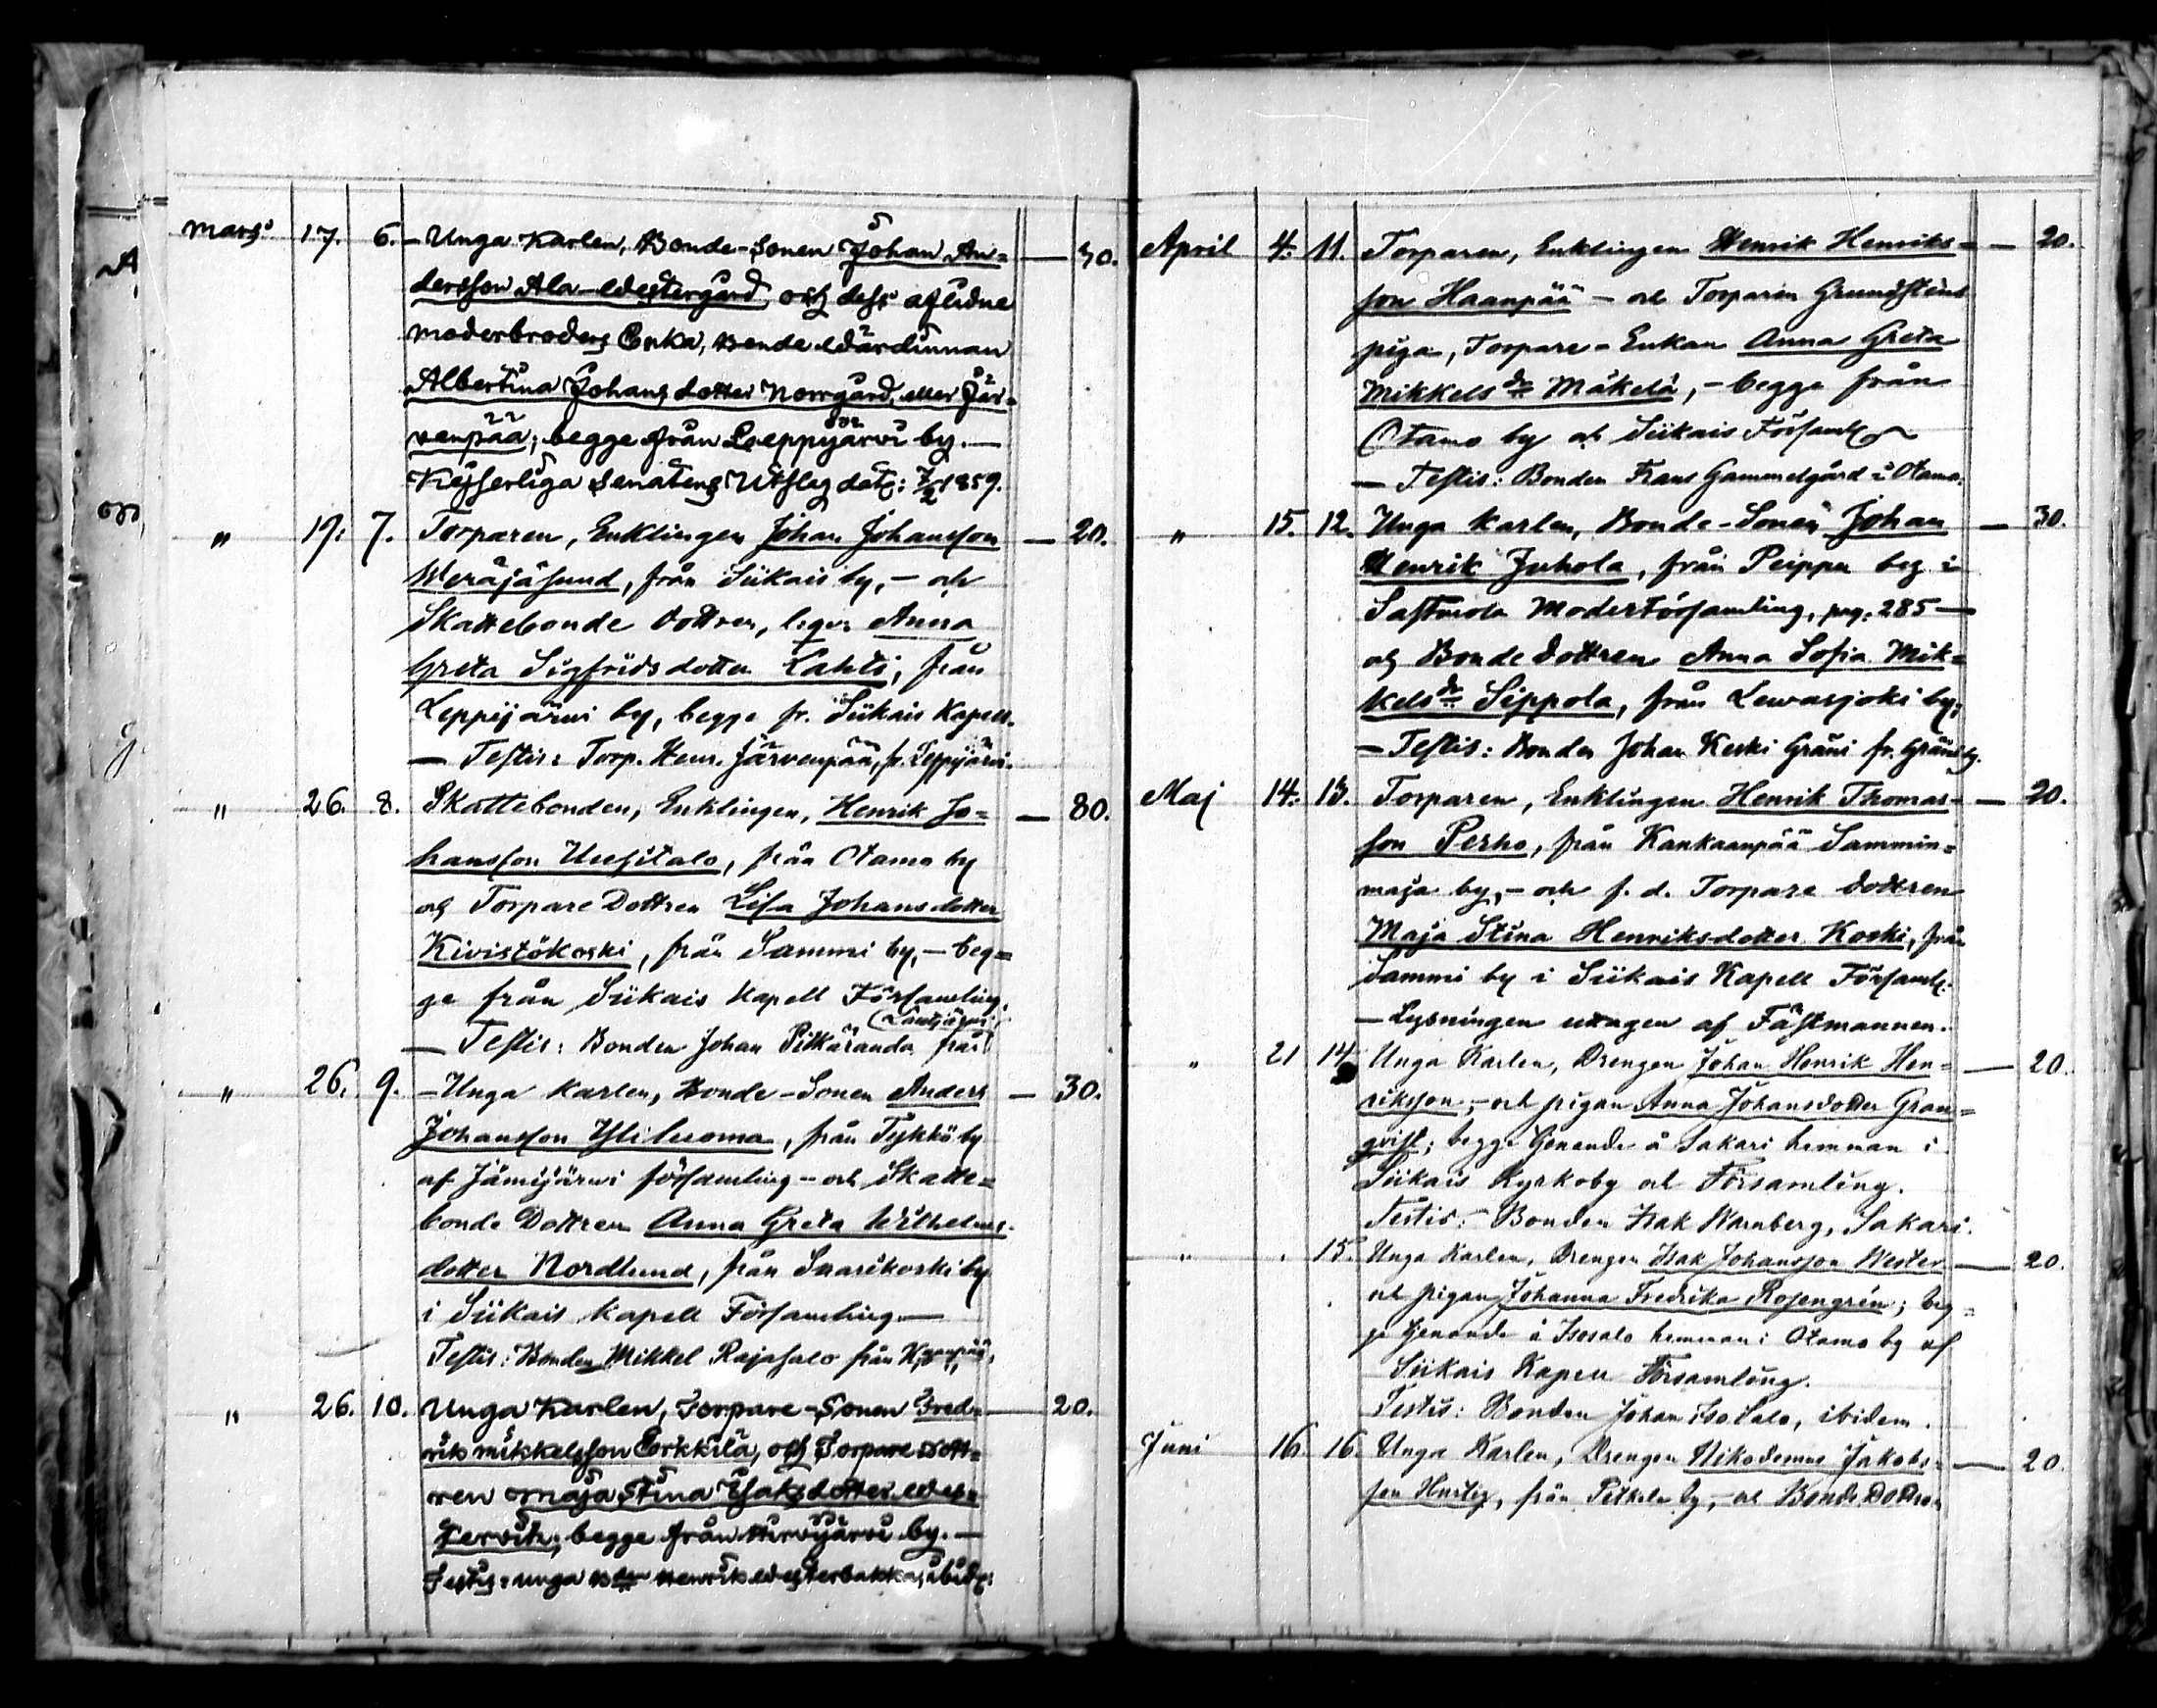 Mars 17. 6. — Unga Karlen, Bonde-Sonen Johan An= — 30.
dersson Ala-Westergård, och dess aflidne
moderbroders Enka, Bonde Wärdinnan
Albertina Johans dotter Norrgård, eller Jär=
venpää; begge från Leppijärvi by. —
Kejserliga Senatens Utslag dat: 7/2 1859.
" 19: 7. Torparen, Enklingen Johan Johansson — 20.
från Siikais by, — och
Skattebonde Dottren, Anna
Greta Sigfridsdotter Lahti, från
Leppijärwi by, begge fr. Siikais Kapell.
— Testis: Torp. Henr. Järvenpää, fr. Leppijärwi.
" 26. 8. Skattebonden, Enklingen, Henrik Jo= — 80.
hansson Uusitalo, från Otamo by
och Torpare Dottren Lisa Johansdotter
Kivistökoski, från Sammi by, — beg=
ge från Siikais Kapell Församling.
— Testis: Bonden Johan Pitkäranda från
" 26. 9. — Unga Karlen, Bonde-Sonen Anders — 30.
Johansson Yliluoma, från by
af Jämijärwi församling — och Skatte=
bonde Dottren Anna Greta Wilhelms-
dotter Nordlund, från Saarikoski by
i Siikais Kapell Församling. —
Testis: Bonden Mikkel Rajasalo från
" 26. 10. Unga Karlen, Torpare-Sonen Fred= — 20.
rik Mikkelsson Torkkila, och Torpare Dott=
ren Maja Stina Isaksdotter Wes=
tervik; begge från Hirvijärvi by. —
Testis: unga Henrik Westerbakka, ibid:
April 4. 11. Torparen, Enklingen Henrik Henriks= — 20.
son Haanpää — och Torparen Grundstens
piga, Torpare-Enkan Anna Greta
Mikkels dr Mäkelä, — begge från
Otamo by och Siikais Församl
— Testis: Bonden Frans Gammelgård i Otamo.
" 15. 12. Unga Karlen, Bonde-Sonen Johan — 30.
Henrik Juhola, från Peippu by i
Sastmola Moderförsamling, pag: 285 —
och Bonde Dottren Anna Sofia Mik=
kels dr Sippola, från Lewasjoki by.
— Testis: Bonden Johan Keski Gräni fr. Gräni by.
Maj 14. 13. Torparen, Enklingen Henrik Thomas= — 20.
son Perho, från Kankaanpää Sammin=
maja by, — och f. d. Torpare Dottren
Maja Stina Henriksdotter Koski, från
Sammi by i Siikais Kapell Församl.
— Lysningen uttagen af Fästmannen.
" 21 14. Unga Karlen, Drengen Johan Henrik Hen= — 20.
riksson, — och pigan Anna Johansdotter Gran=
qvist; begge tjenande å Sakari hemman i
Siikais Kyrkoby och Församling.
Testis: Bonden Isak Warnberg, Sakari.
" 15. Unga Karlen, Drengen Isak Johansson Wester — 20.
och pigan Johanna Fredrika Rosengrén; beg=
ge tjenande å Isosalo hemman i Otamo by af
Siikais Kapell Församling.
Testis: Bonden Johan Iso Salo, ibidem.
Juni 16. 16. Unga Karlen, Drengen Nikodemus Jakobs= — 20.
son Hurtig, från by, — och Bonde Dottren